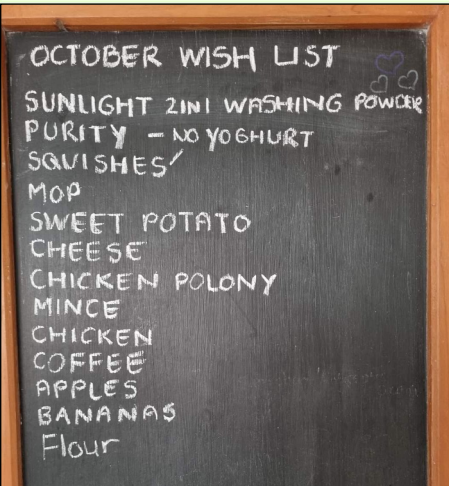 OCTOBER WISH LIST
SUNLIGHT 2IN1 WASHING POWDER
PURITY - NO YOGHURT
SQUISHES'
MOP
SWEET POTATO
CHEESE
CHICKEN POLONY
MINCE
CHICKEN
COFFEE
APPLES
BANANAS
Flour